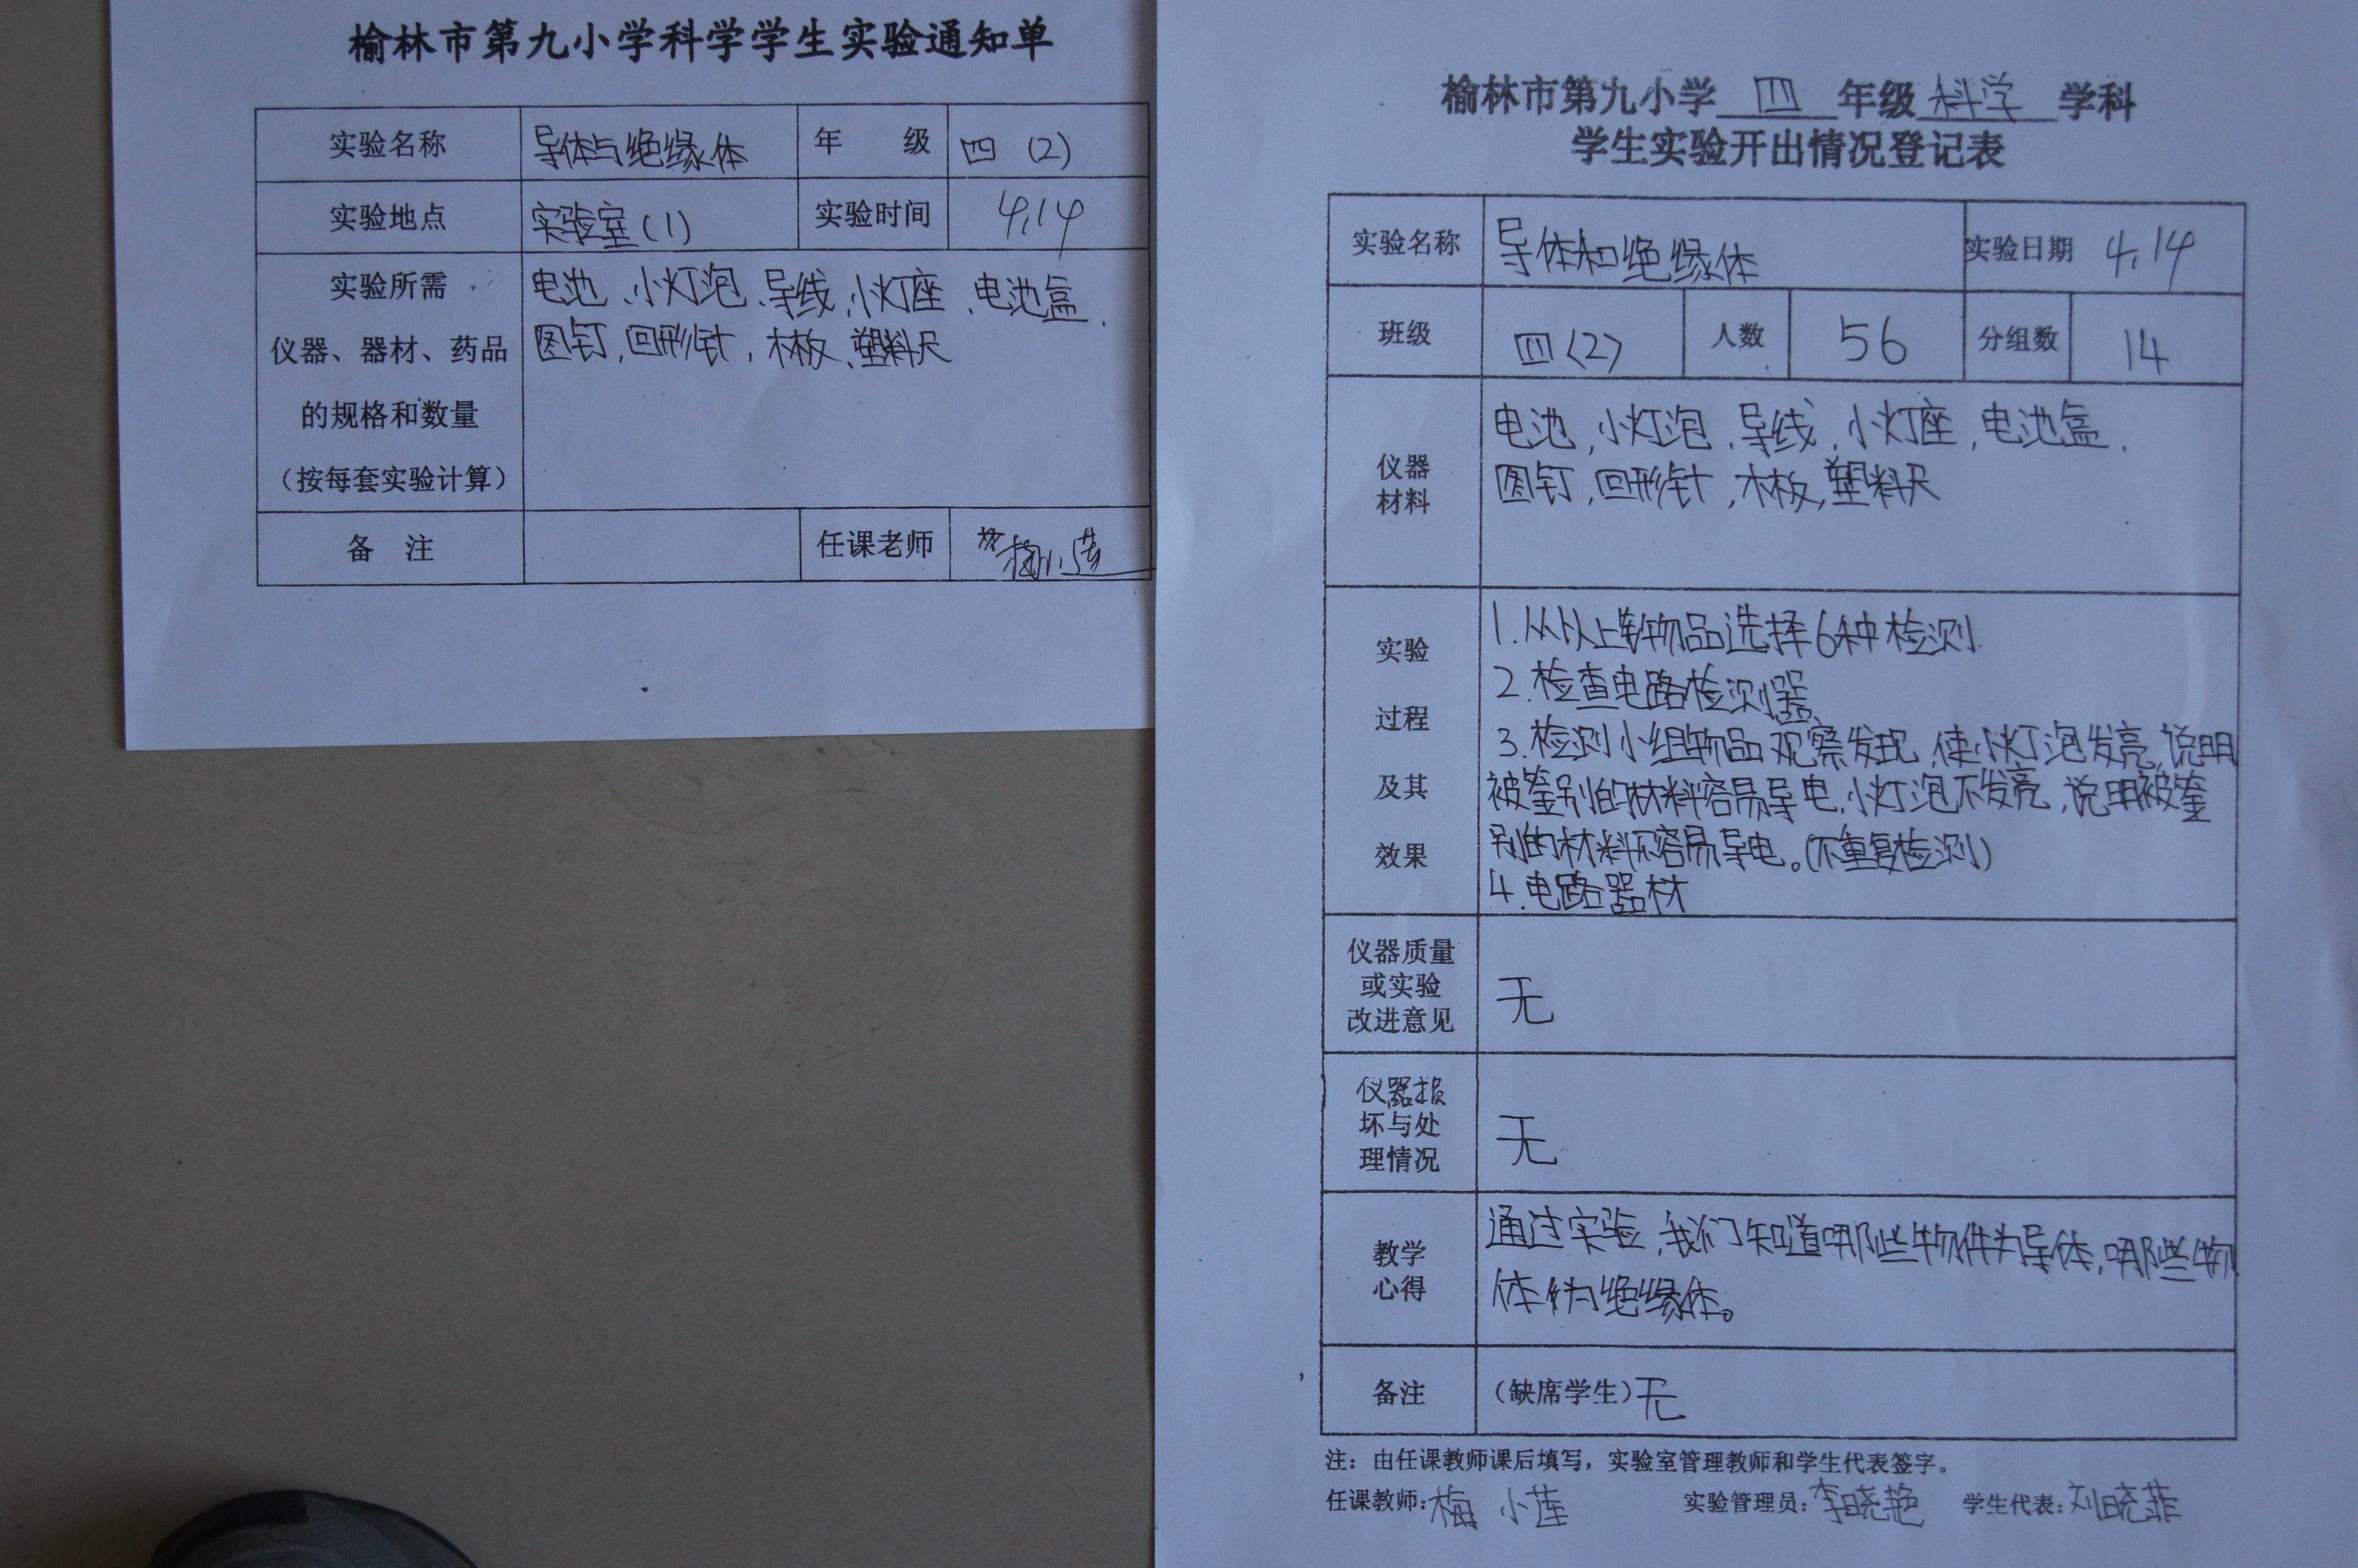 榆林市第九小学科学学生实验通知单
实验名称 导体与绝缘体 年 级 四 (2)
实验地点 实验室(1) 实验时间 4.14
实验所需
仪器、器材、药品
的规格和数量
(按每套实验计算)
电池、小灯泡、导线、小灯座、电池盒、
图钉,回形针,木板、塑料尺
备 注 任课老师 梅小莲
榆林市第九小学 四 年级 科学 学科
学生实验开出情况登记表
实验名称 导体和绝缘体 实验日期 4.14
班级 四(2) 人数 56 分组数 14
仪器
材料
电池,小灯泡、导线,小灯座,电池盒、
图钉,回形针,木板,塑料尺
实验
过程
及其
效果
1.从以上物品选择6种检测.
2.检查电路检测器
3.检测小组物品观察发现,使小灯泡发亮,说明
被鉴别的材料容易导电,小灯泡不发亮,说明被鉴
别的材料不容易导电。(不重复检测)
4.电路器材
仪器质量
或实验
改进意见
无
仪器损
坏与处
理情况
无
教学
心得
通过实验,我们知道哪些物件为导体,哪些物
体为绝缘体。
备注 (缺席学生)无
注:由任课教师课后填写,实验室管理教师和学生代表签字。
任课教师:梅小莲 实验管理员:李晓艳 学生代表:刘晓菲